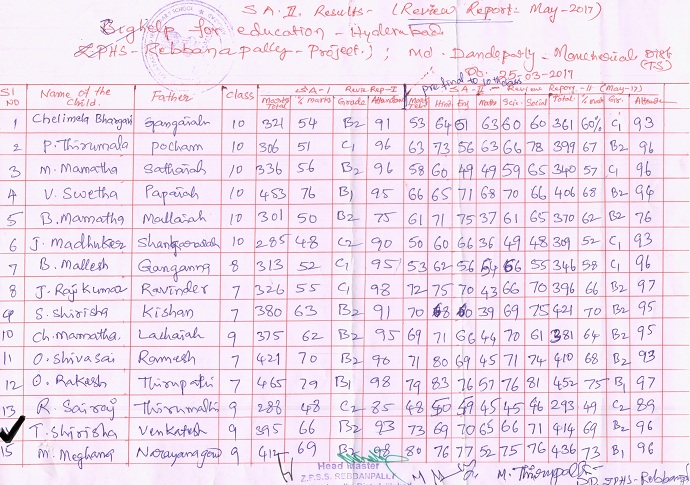 S A. II. Results - (Review Report: May-2017)
Bighelp for education - Hyderabad
ZPHS - Rebbanapally - Project.); Md. Dandepally - Mancherial Dist (TS)
Dt. 25-03-2017
SA-I Reva Rep-I SA-II - Review Report-II (May-17)
Sl NO Name of the Child. Father Class Marks Total % Marks Grade Attendance Tel Hindi Eng Maths Scie. Social Total % mark Gr. Attend
1 Chelimela Bhargavi Gangaiah 10 321 54 B2 91 53 64 61 63 60 60 361 60% C1 93
2 P. Thirumala Pocham 10 306 51 C1 96 63 73 56 63 66 78 399 67 B2 96
3 M. Mamatha Sathaiah 10 336 56 B2 96 58 60 49 49 59 65 340 57 C1 96
4 V. Swetha Papaiah 10 453 76 B1 95 66 65 71 68 70 66 406 68 B2 94
5 B. Mamatha Mallaiah 10 301 50 B2 75 61 71 75 37 61 65 370 62 B2 76
6 J. Madhuker 10 285 48 C2 90 50 60 66 36 49 48 309 52 C1 93
7 B. Mallesh Ganganna 8 313 52 C1 95 53 62 56 54 66 55 346 58 C1 96
8 J. Raj Kumar Ravinder 7 326 55 C1 98 72 75 70 43 66 70 396 66 B2 97
9 S. Shirisha Kishan 7 380 63 B2 91 70 68 60 39 69 75 421 70 B2 95
10 Ch. Mamatha. Lachaiah 9 375 62 B2 95 69 71 66 44 70 61 381 64 B2 95
11 O. Shivasai Ramesh 7 421 70 B2 90 71 80 69 45 71 74 410 68 B2 93
12 O. Rakesh Thirupathi 7 465 79 B1 98 79 83 76 57 76 81 452 75 B1 97
13 R. Sairaj Thirumallu 9 288 48 C2 85 48 60 49 45 45 46 293 49 C2 89
T. Shirisha Venkatesh 9 395 66 B2 93 73 69 70 65 66 71 414 69 B2 96
15 M. Meghana Narayanagow 9 412 69 B2 98 80 76 77 52 75 76 436 73 B1 96
Head Master
Z.P.S.S. REBBANPALLY
M. Thirupathi
ZPHS - Rebbanapally